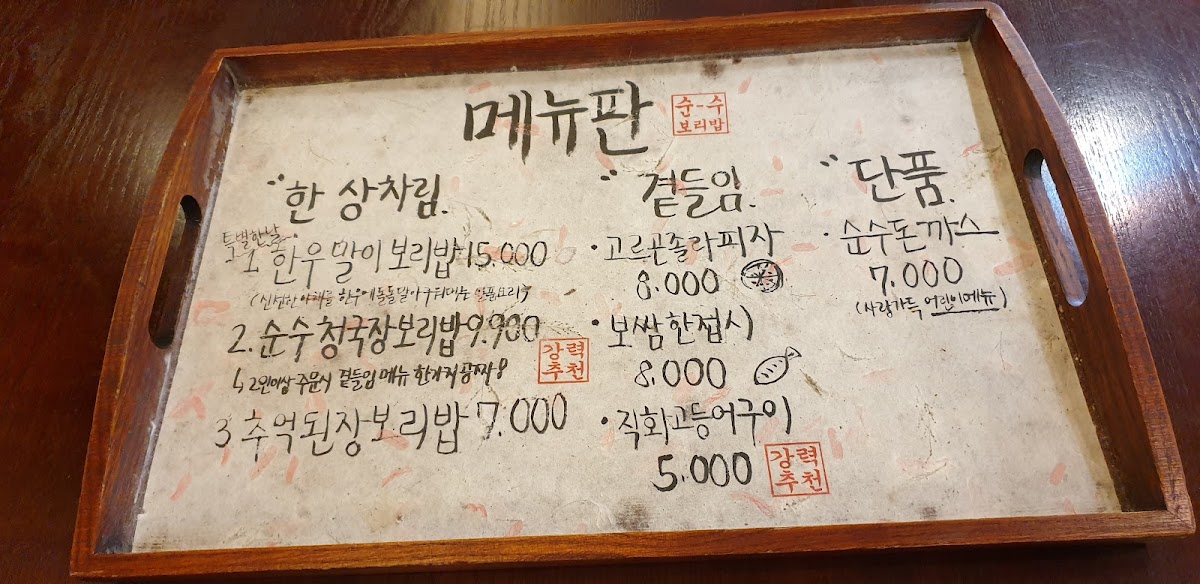 메뉴판
순-수
보리밥
" 한 상차림.
특별한날
1. 한우말이보리밥 15.000
(신선한 야채를 한우에 돌돌말아 구워내는 일품요리)
2. 순수청국장보리밥 9.900
↳ 2인이상 주문시 곁들임 메뉴 한가지 공짜!
강력
추천
3 추억된장보리밥 7.000
" 곁들임.
• 고르곤졸라피자
8.000
• 보쌈한접시
8.000
• 직화고등어구이
5.000
강력
추천
" 단품.
· 순수돈까스
7.000
(사랑가득 어린이메뉴)